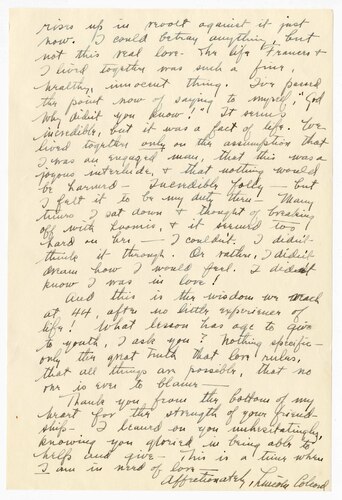 rises up in revolt against it just
now. I could betray anything but
not this real love. The life Frances &
I lived together was such a fine,
healthy, innocent thing. I've passed
the point now of saying to myself, "God
why didn't you know!" It seems
incredible, but it was a fact of life. We
lived together only on the assumption that
I was an engaged man, that this was a
joyous interlude, & that nothing would
be harmed — Incredible folly — but
I felt it to be my duty then — Many
times I sat down & thought of breaking
off with Loomis, & it seemed too
hard on her — I couldn't. I didn't
think it through. Or rather, I didn't
dream how I would feel. I didn't
know I was in love!
And this is the wisdom we reach
at 44, after no little experience of
life! What lesson has age to give
to youth, I ask you? Nothing specific—
only the great truth that love rules,
that all things are possible, that no
one is ever to blame—
Thank you from the bottom of my
heart for the strength of your friend-
ship — I leaned on you unhesitatingly,
knowing you gloried in being able to
help and give — This is a time when
I am in need of love —
Affectionately, Lincoln Colcord